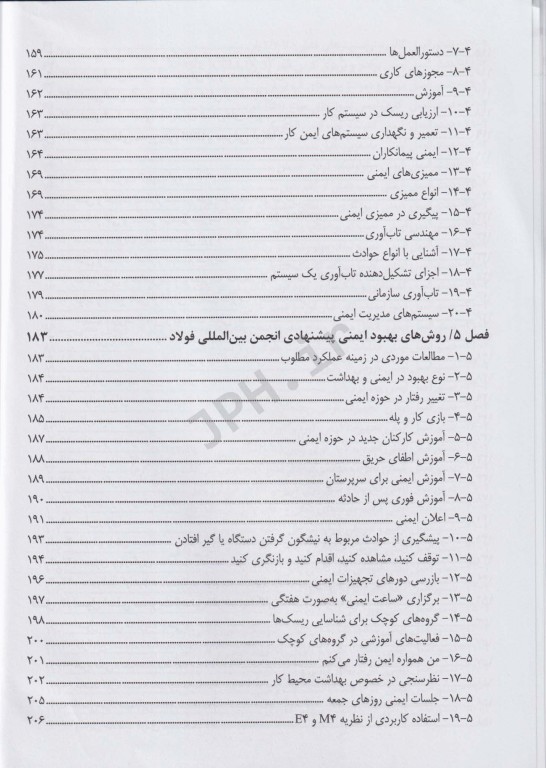 ۴-۷- دستورالعمل‌ها ........ ۱۵۹
۴-۸- مجوزهای کاری ........ ۱۶۱
۴-۹- آموزش ........ ۱۶۲
۴-۱۰- ارزیابی ریسک در سیستم کار ........ ۱۶۳
۴-۱۱- تعمیر و نگهداری سیستم‌های ایمن کار ........ ۱۶۳
۴-۱۲- ایمنی پیمانکاران ........ ۱۶۴
۴-۱۳- ممیزی‌های ایمنی ........ ۱۶۹
۴-۱۴- انواع ممیزی ........ ۱۶۹
۴-۱۵- پیگیری در ممیزی ایمنی ........ ۱۷۴
۴-۱۶- مهندسی تاب‌آوری ........ ۱۷۴
۴-۱۷- آشنایی با انواع حوادث ........ ۱۷۵
۴-۱۸- اجزای تشکیل‌دهنده تاب‌آوری یک سیستم ........ ۱۷۷
۴-۱۹- تاب‌آوری سازمانی ........ ۱۷۹
۴-۲۰- سیستم‌های مدیریت ایمنی ........ ۱۸۰
فصل ۵/ روش‌های بهبود ایمنی پیشنهادی انجمن بین‌المللی فولاد ........ ۱۸۳
۵-۱- مطالعات موردی در زمینه عملکرد مطلوب ........ ۱۸۳
۵-۲- نوع بهبود در ایمنی و بهداشت ........ ۱۸۴
۵-۳- تغییر رفتار در حوزه ایمنی ........ ۱۸۴
۵-۴- بازی کار و پله ........ ۱۸۵
۵-۵- آموزش کارکنان جدید در حوزه ایمنی ........ ۱۸۷
۵-۶- آموزش اطفای حریق ........ ۱۸۸
۵-۷- آموزش ایمنی برای سرپرستان ........ ۱۸۹
۵-۸- آموزش فوری پس از حادثه ........ ۱۹۰
۵-۹- اعلان ایمنی ........ ۱۹۱
۵-۱۰- پیشگیری از حوادث مربوط به نیشگون گرفتن دستگاه یا گیر افتادن ........ ۱۹۳
۵-۱۱- توقف کنید، مشاهده کنید، اقدام کنید و بازنگری کنید ........ ۱۹۴
۵-۱۲- بازرسی دورهای تجهیزات ایمنی ........ ۱۹۶
۵-۱۳- برگزاری «ساعت ایمنی» به‌صورت هفتگی ........ ۱۹۷
۵-۱۴- گروه‌های کوچک برای شناسایی ریسک‌ها ........ ۱۹۸
۵-۱۵- فعالیت‌های آموزشی در گروه‌های کوچک ........ ۲۰۰
۵-۱۶- من همواره ایمن رفتار می‌کنم ........ ۲۰۱
۵-۱۷- نظرسنجی در خصوص بهداشت محیط کار ........ ۲۰۲
۵-۱۸- جلسات ایمنی روزهای جمعه ........ ۲۰۵
۵-۱۹- استفاده کاربردی از نظریه M۴ و E۴ ........ ۲۰۶
JPH.ir